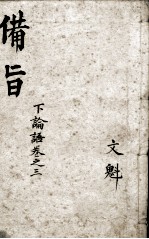 備旨
下論語卷之三
文魁